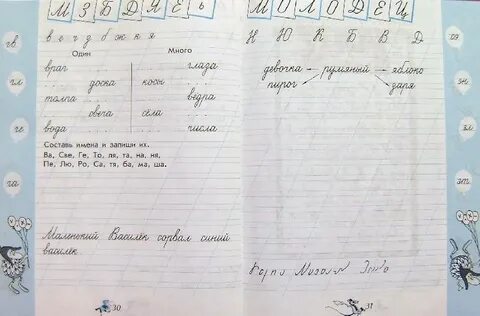 М З Б Д Я Е Ь
в е г з б ж к я
Один Много
враг глаза
доска косы
толпа вёдра
овега сёла
вода числа
Составь имена и запиши их.
Ва, Све, Ге, То, ля, та, на, ня,
Пе, Лю, Ро, Са, тя, ба, ма, ша.
Маленький Василёк сорвал синий
василёк.
30
М О Л О Д Е Ц
Н Ю К Б В Д
девочка румяный яблоко
пирог заря
31
гв
гл
ге
га
эн
зл
эт